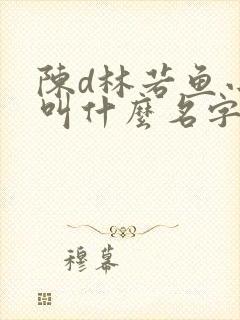 陳d林若鱼
叫什麼名字
穆幕